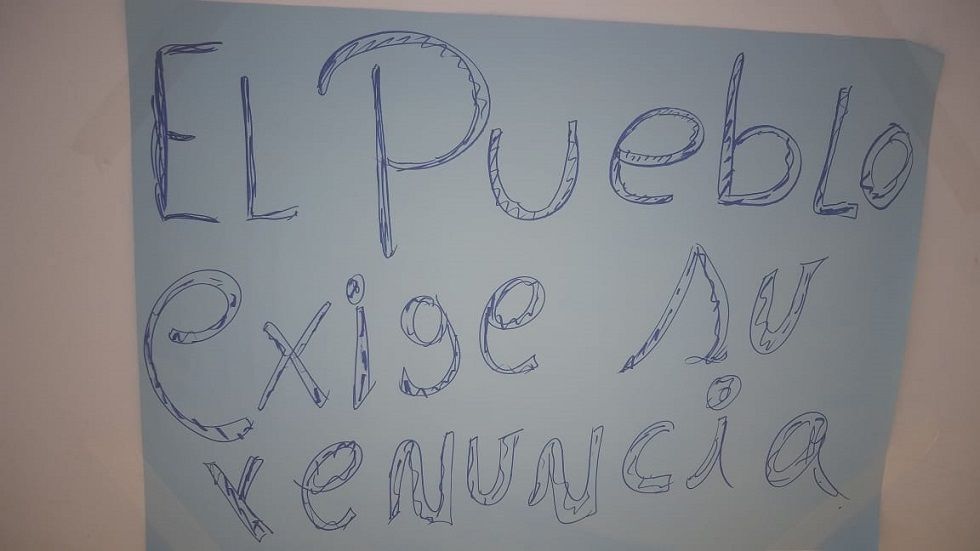 El Pueblo
exige su
renuncia